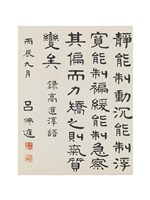 靜能制動沉能制浮
寬能制褊緩能制急察
其偏而力矯之則氣質
變矣 錄高道淳語
丙辰九月 呂佛庭